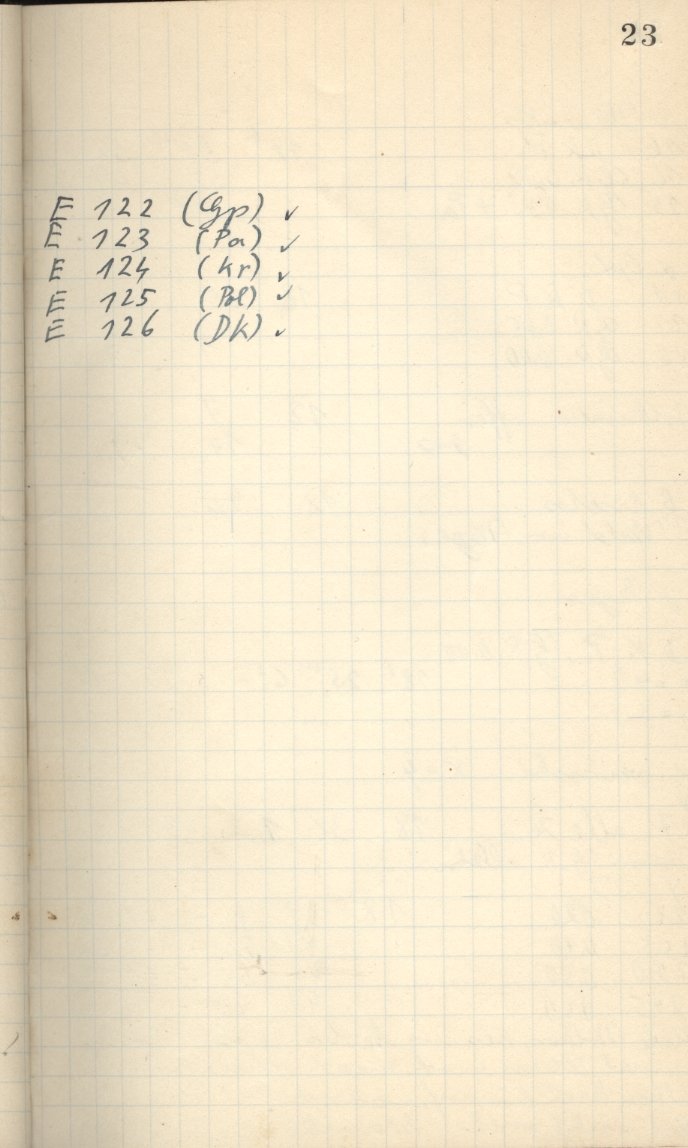 23
E 122 (Gp) ✓
E 123 (Pa) ✓
E 124 (Kr) ✓
E 125 (Bl) ✓
E 126 (DK) ✓